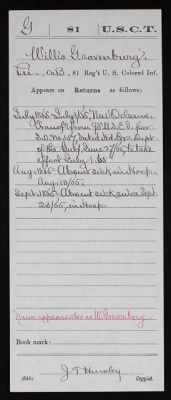 G | 81 | U.S.C.T.
Willis Gravenburg
Co. B, 81 Reg't U. S. Colored Inf.
Appears on Returns as follows:
July 1865
New Orleans
Transf. from
S.O. No. 157, dated Hd. Qrs. Dept.
of the Gulf June 27/65, to take
effect July 1.65
Aug. 1865 - Absent sick in Hosp.
Aug. 18/65.
Sept. 1865 - Absent sick since Sept.
23/65, in Hosp.
Name appears also as W. Gravenberg.
Book mark:
(546)
Copyist.